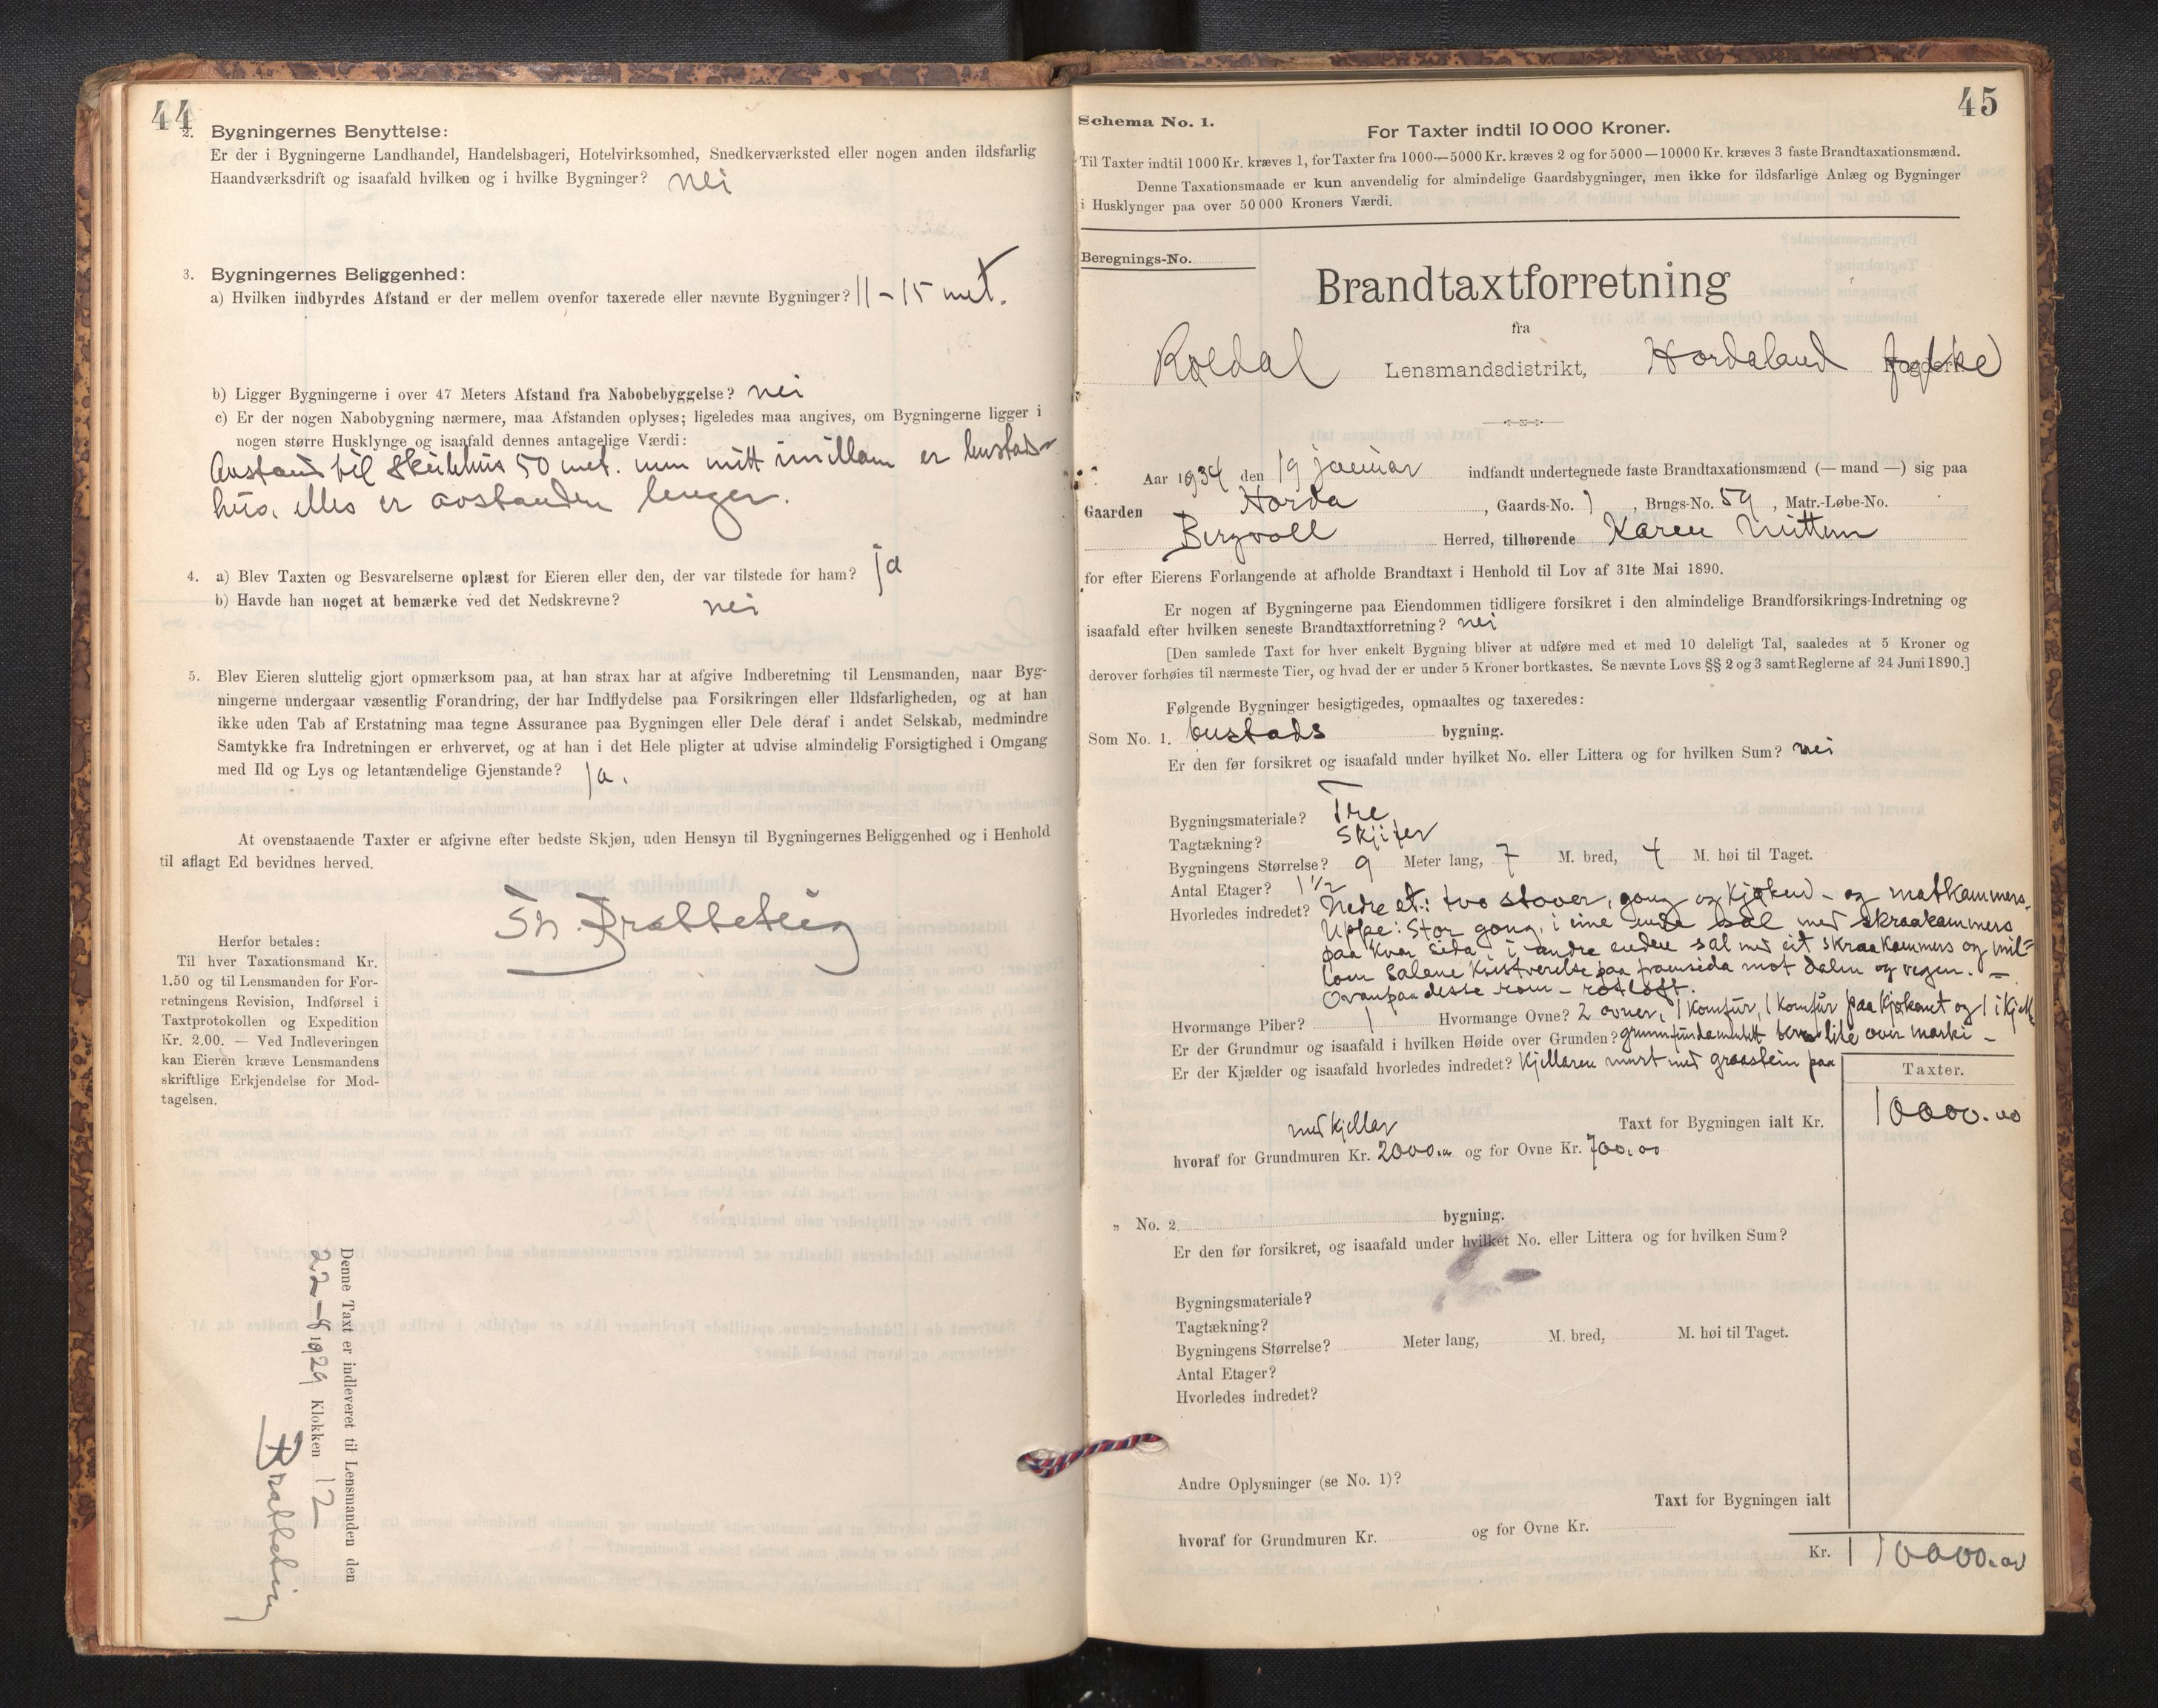 44
2. Bygningernes Benyttelse:
Er der i Bygningerne Landhandel, Handelsbageri, Hotelvirksomhed, Snedkerværksted eller nogen anden ildsfarlig
Haandværksdrift og isaafald hvilken og i hvilke Bygninger? nei
3. Bygningernes Beliggenhed:
a) Hvilken indbyrdes Afstand er der mellem ovenfor taxerede eller nævnte Bygninger? 11 – 15 met.
b) Ligger Bygningerne i over 47 Meters Afstand fra Nabobebyggelse? nei
c) Er der nogen Nabobygning nærmere, maa Afstanden oplyses; ligeledes maa angives, om Bygningerne ligger i
nogen større Husklynge og isaafald dennes antagelige Værdi:
Avstand til Skulehus 50 met. men mitt imillom er bustads-
hus. elles er avstanden lenger.
4. a) Blev Taxten og Besvarelserne oplæst for Eieren eller den, der var tilstede for ham? ja
b) Havde han noget at bemærke ved det Nedskrevne? nei
5. Blev Eieren sluttelig gjort opmærksom paa, at han strax har at afgive Indberetning til Lensmanden, naar Byg-
ningerne undergaar væsentlig Forandring, der har Indflydelse paa Forsikringen eller Ildsfarligheden, og at han
ikke uden Tab af Erstatning maa tegne Assurance paa Bygningen eller Dele deraf i andet Selskab, medmindre
Samtykke fra Indretningen er erhvervet, og at han i det Hele pligter at udvise almindelig Forsigtighed i Omgang
med Ild og Lys og letantændelige Gjenstande? ja.
At ovenstaaende Taxter er afgivne efter bedste Skjøn, uden Hensyn til Bygningernes Beliggenhed og i Henhold
til aflagt Ed bevidnes herved.
Bratteteig
Herfor betales:
Til hver Taxationsmand Kr.
1.50 og til Lensmanden for For-
retningens Revision, Indførsel i
Taxtprotokollen og Expedition
Kr. 2.00. — Ved Indleveringen
kan Eieren kræve Lensmandens
skriftlige Erkjendelse for Mod-
tagelsen.
Denne Taxt er indleveret til Lensmanden den
22 – 8 1929 Klokken 12
Bratteteig
45
Schema No. 1.
For Taxter indtil 10 000 Kroner.
Til Taxter indtil 1000 Kr. kræves 1, for Taxter fra 1000—5000 Kr. kræves 2 og for 5000—10000 Kr. kræves 3 faste Brandtaxationsmænd.
Denne Taxationsmaade er kun anvendelig for almindelige Gaardsbygninger, men ikke for ildsfarlige Anlæg og Bygninger
i Husklynger paa over 50 000 Kroners Værdi.
Beregnings-No.
Brandtaxtforretning
fra
Røldal Lensmandsdistrikt, Hordaland fylke
Aar 1934 den 19 januar indfandt undertegnede faste Brandtaxationsmænd (— mand —) sig paa
Gaarden Horda, Gaards-No. 1, Brugs-No. 59, Matr.-Løbe-No.
Bergvoll Herred, tilhørende Karen
for efter Eierens Forlangende at afholde Brandtaxt i Henhold til Lov af 31te Mai 1890.
Er nogen af Bygningerne paa Eiendommen tidligere forsikret i den almindelige Brandforsikrings-Indretning og
isaafald efter hvilken seneste Brandtaxtforretning? nei
[Den samlede Taxt for hver enkelt Bygning bliver at udføre med et med 10 deleligt Tal, saaledes at 5 Kroner og
derover forhøies til nærmeste Tier, og hvad der er under 5 Kroner bortkastes. Se nævnte Lovs §§ 2 og 3 samt Reglerne af 24 Juni 1890.]
Følgende Bygninger besigtigedes, opmaaltes og taxeredes:
Som No. 1. bustads bygning.
Er den før forsikret og isaafald under hvilket No. eller Littera og for hvilken Sum? nei
Bygningsmateriale? Tre
Tagtækning? Skjifer
Bygningens Størrelse? 9 Meter lang, 7 M. bred, 4 M. høi til Taget.
Antal Etager? 1 1/2
Hvorledes indredet? Nedre et.: tvo stover, gang og kjøken – og matkammers.
Uppe: Stor gang, i eine ende sal med skraakammers
paa kvar sida, i andre enden sal med eit skraakammers og mil-
lom salene kvistverelse paa framsida mot dalen og vegen. –
Ovanpaa desse rom – rotloft.
Hvormange Piber? 1 Hvormange Ovne? 2 ovner, 1 Komfur, 1 Komfur paa kjøkenet og 1 i kjell
Er der Grundmur og isaafald i hvilken Høide over Grunden? grunnfundamentet lite over marki –
Er der Kjælder og isaafald hvorledes indredet? Kjellaren murt med graastein paa
Taxter.
Taxt for Bygningen ialt Kr. 10000.00
med kjellar
hvoraf for Grundmuren Kr. 2000.00 og for Ovne Kr. 700.00
„ No. 2. bygning.
Er den før forsikret, og isaafald under hvilket No. eller Littera og for hvilken Sum?
Bygningsmateriale?
Tagtækning?
Bygningens Størrelse? Meter lang, M. bred, M. høi til Taget.
Antal Etager?
Hvorledes indredet?
Andre Oplysninger (se No. 1)?
Taxt for Bygningen ialt
hvoraf for Grundmuren Kr. og for Ovne Kr.
Kr. 10000.00